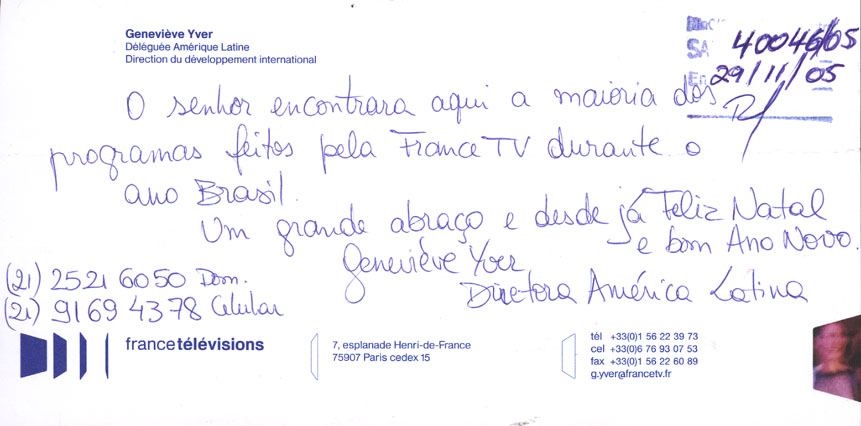 Geneviève Yver
Déléguée Amérique Latine
Direction du développement international
40046/05
29/11/05
O senhor encontrara aqui a maioria dos
programas feitos pela France TV durante o
ano Brasil.
Um grande abraço e desde já Feliz Natal
e bom Ano Novo.
Geneviève Yver
Diretora América Latina
(21) 2521 6050 Dom.
(21) 9169 4378 Celular
francetélévisions
7, esplanade Henri-de-France
75907 Paris cedex 15
tél +33(0)1 56 22 39 73
cel +33(0)6 76 93 07 53
fax +33(0)1 56 22 60 89
g.yver@francetv.fr